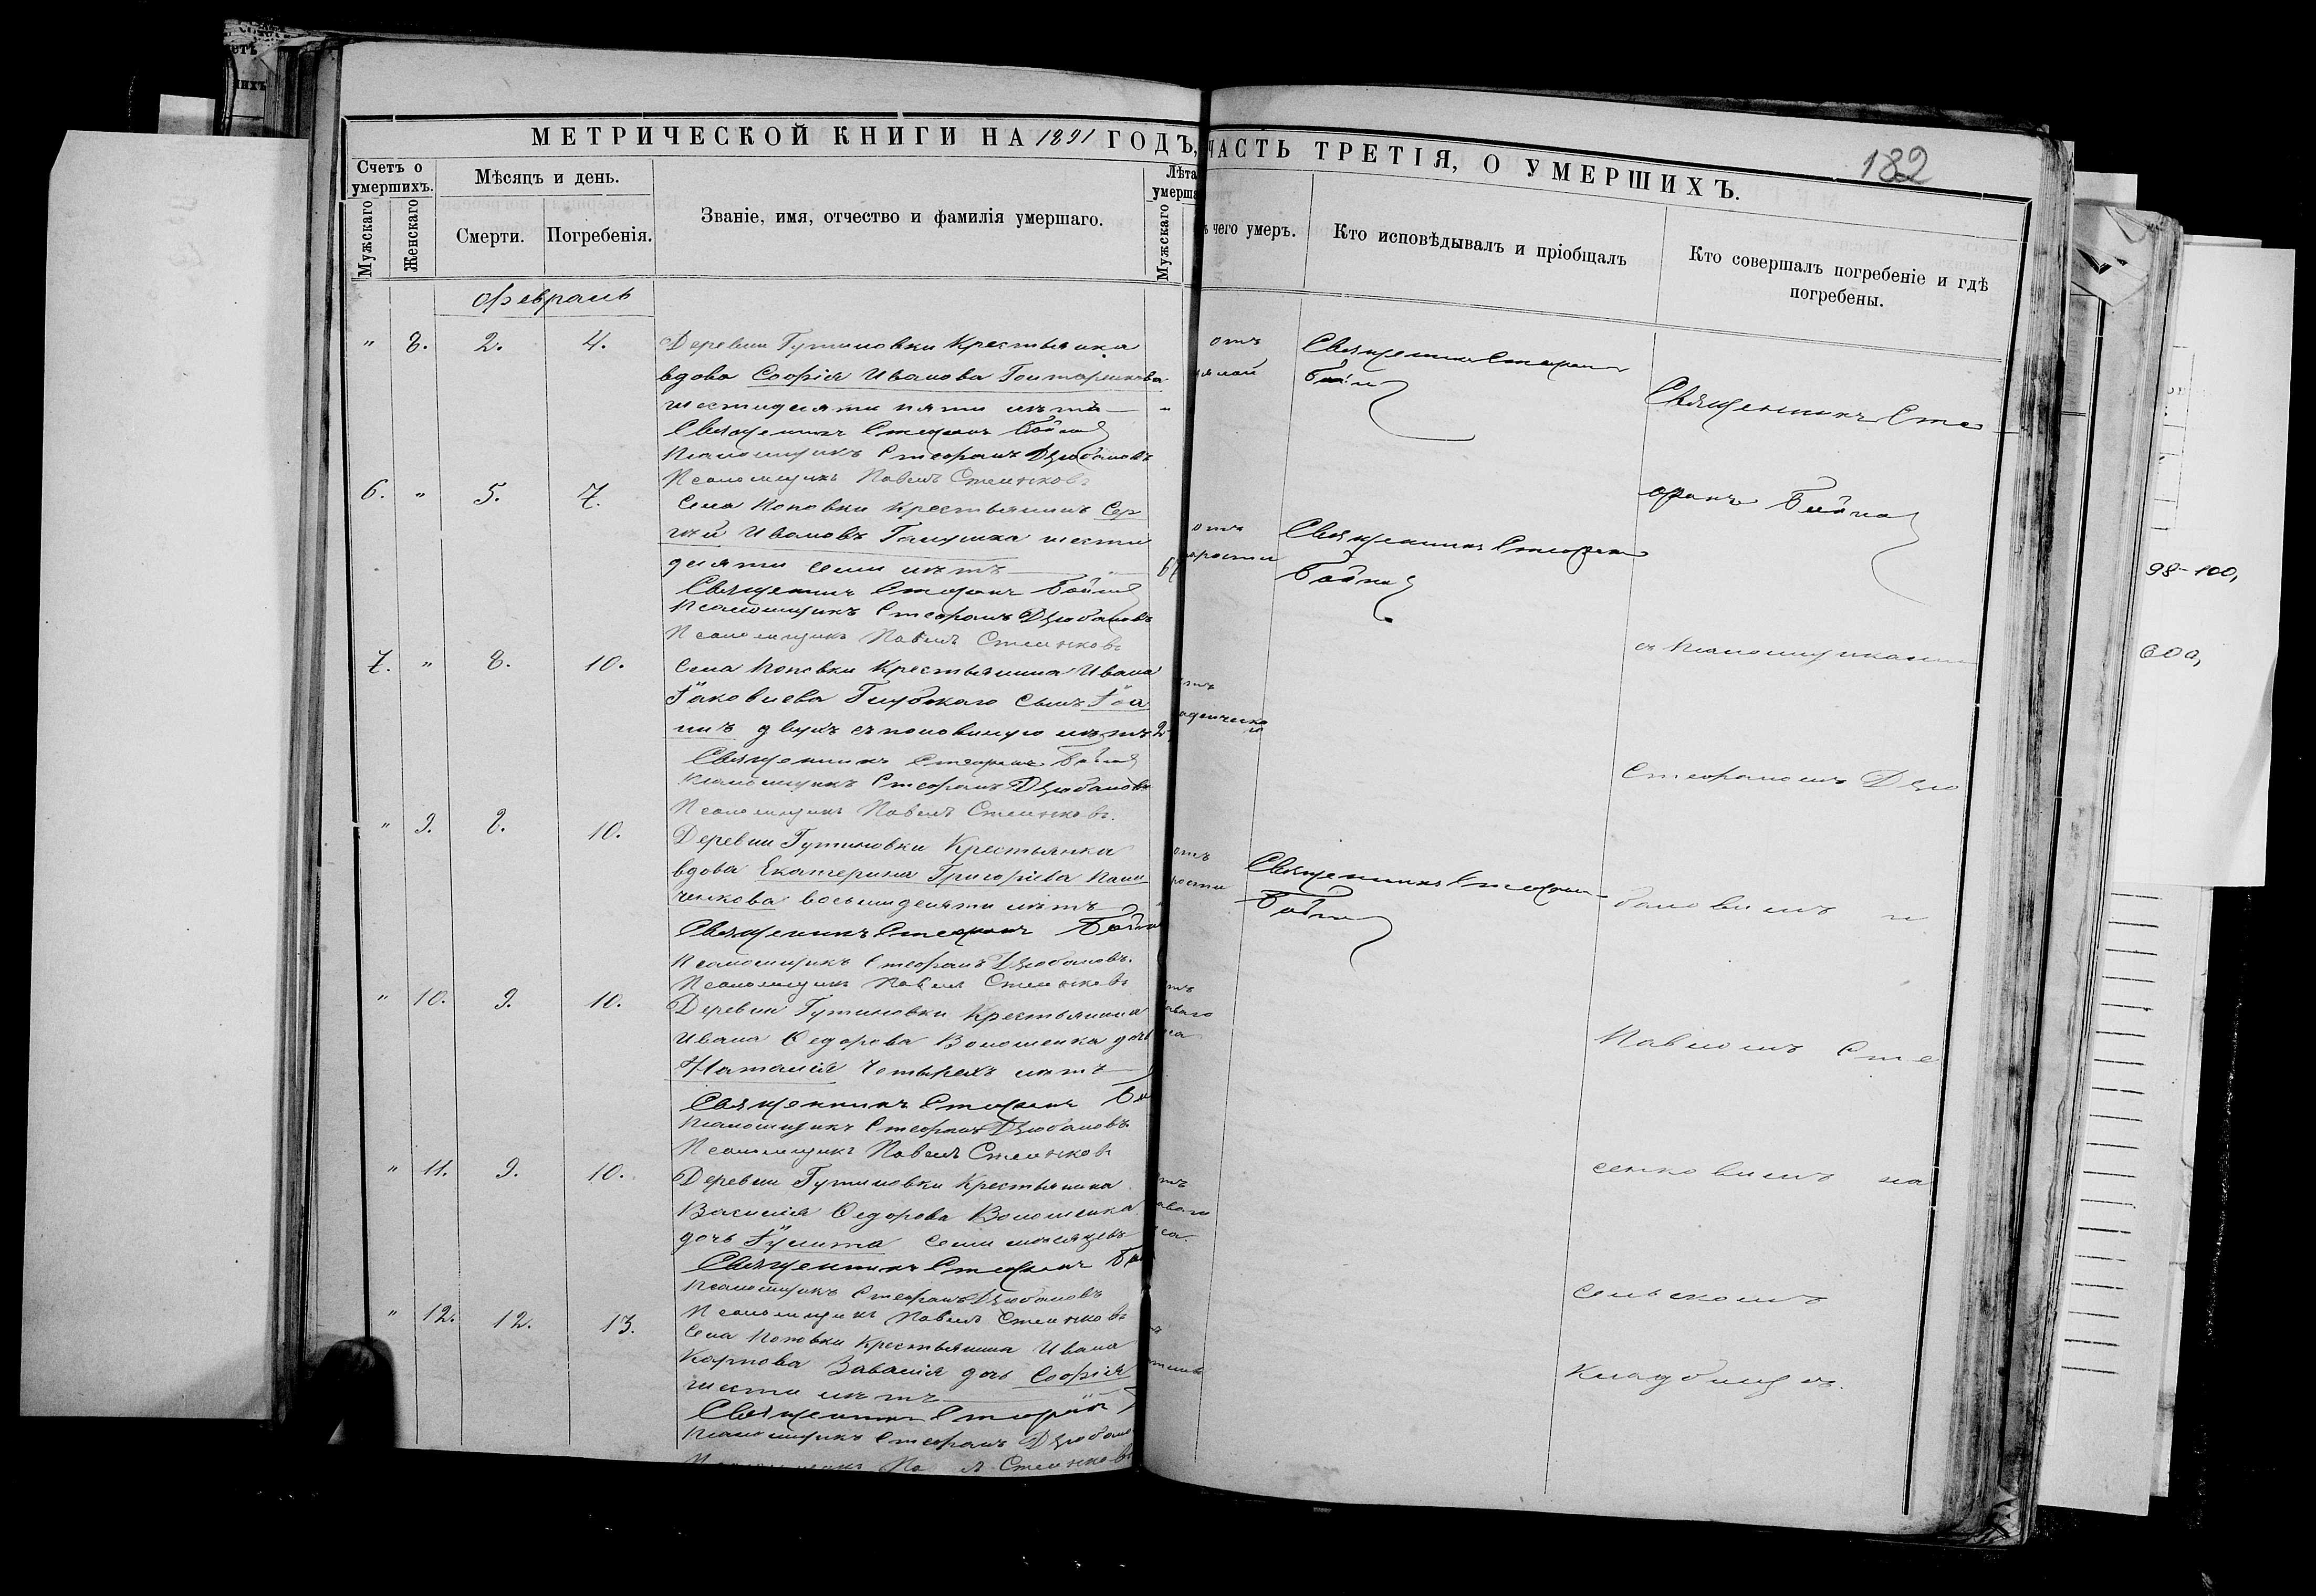 МЕТРИЧЕСКОЙ КНИГИ НА 1891 ГОДЪ, ЧАСТЬ ТРЕТІЯ, О УМЕРШИХЪ.
182
Счетъ о умершихъ.
Мужскаго
Женскаго
Мѣсяцъ и день.
Смерти.
Погребенія.
Званіе, имя, отчество и фамилія умершаго.
Лѣта умерша
Мужскаго
чего умеръ.
Кто исповѣдывалъ и пріобщалъ
Кто совершалъ погребеніе и гдѣ погребены.
Февраль
" 8. 2. 4.
Деревни Гутиновки Крестьянка
вдова Софія Иванова
шестидесяти пяти лѣтъ
Священникъ Стефанъ Бойко
Псаломщикъ Стефанъ Дзюбановъ
Псаломщикъ Павелъ
отъ
Священникъ Стефанъ
Бойко
6. " 5. 7.
Села Поповки Крестьянинъ Сер
гѣй Ивановъ Галушка шести
десяти семи лѣтъ
Священникъ Стефанъ Бойко
Псаломщикъ Стефанъ Дзюбановъ
Псаломщикъ Павелъ
67
отъ
Священникъ Стефанъ
Бойко
7. " 8. 10.
Села Поповки Крестьянина Ивана
Іаковлева Глубокаго сынъ Іоа
ннъ двухъ съ половиною лѣтъ 2
Священникъ Стефанъ Бойко
Псаломщикъ Стефанъ Дзюбановъ
Псаломщикъ Павелъ
" 9. 8. 10.
Деревни Гутиновки Крестьянка
вдова Екатерина Григоріева
восьмидесяти лѣтъ
Священникъ Стефанъ Бойко
Псаломщикъ Стефанъ Дзюбановъ.
Псаломщикъ Павелъ
отъ
Священникъ Стефанъ
Бойко
" 10. 9. 10.
Деревни Гутиновки Крестьянина
Ивана Ѳедорова Волошенка дочь
Наталія четырехъ лѣтъ
Священникъ Стефанъ
Псаломщикъ Стефанъ Дзюбановъ
Псаломщикъ Павелъ
" 11. 9. 10.
Деревни Гутиновки Крестьянина
Василія Ѳедорова Волошенка
дочь Іулита семи мѣсяцевъ
Священникъ Стефанъ
Псаломщикъ Стефанъ Дзюбановъ
Псаломщикъ Павелъ
" 12. 12. 13.
Села Поповки Крестьянина Ивана
Карпова дочь Софія
шести лѣтъ
Священникъ Стефанъ
Псаломщикъ Стефанъ
Священникъ Сте
фанъ Бойко
съ псаломщиками
Стефаномъ Дзю
бановымъ и
Павломъ Сте
на
сельскомъ
кладбищѣ.
98-100,
600,